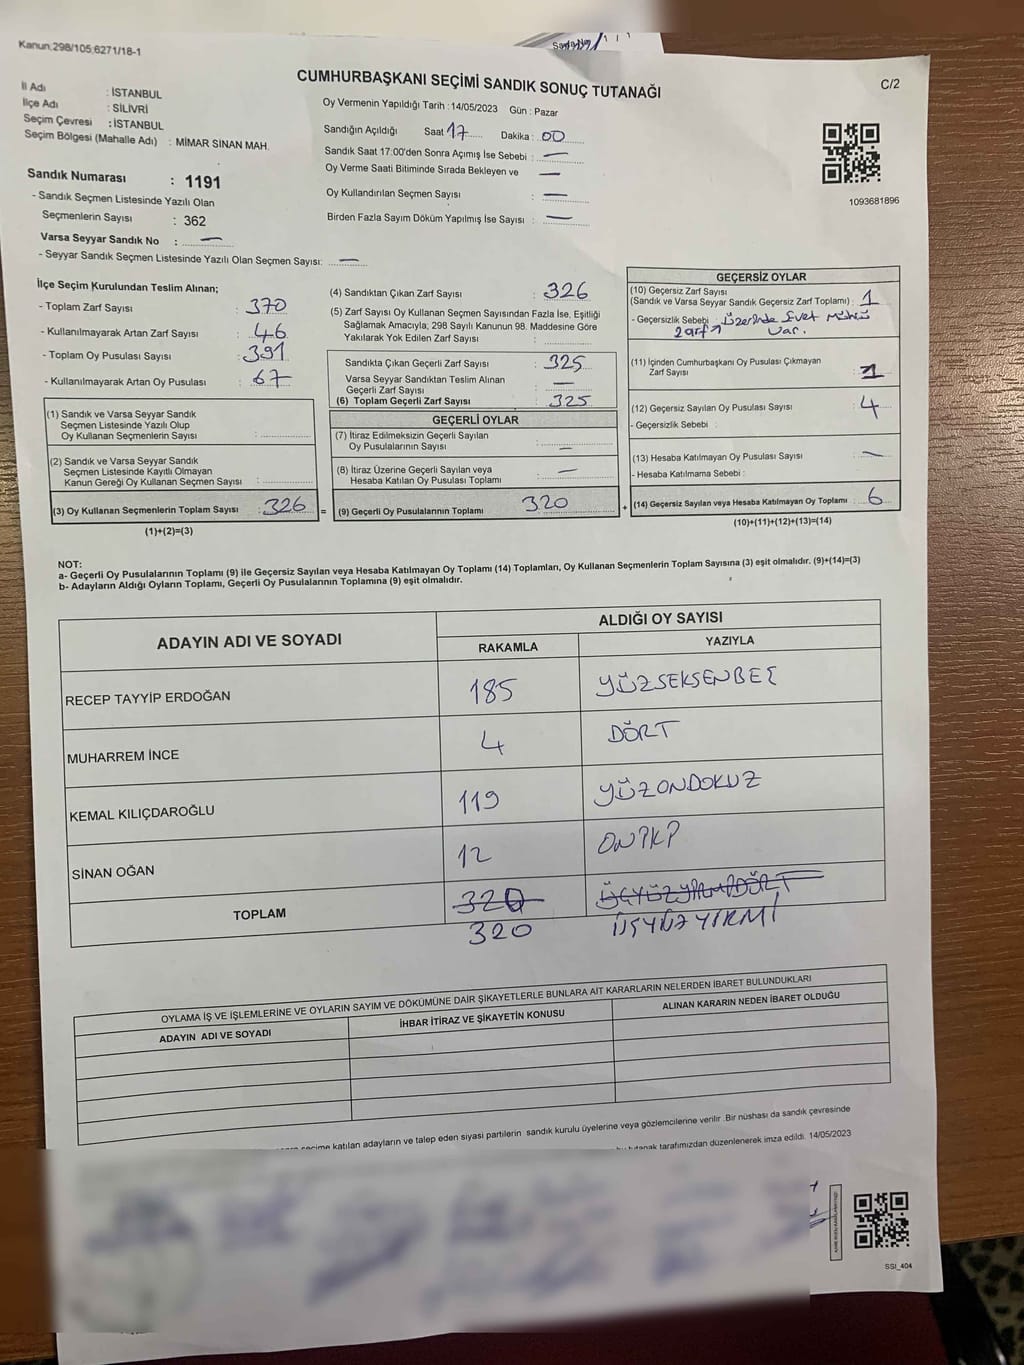 Kanun:298/105;6271/18-1
CUMHURBAŞKANI SEÇİMİ SANDIK SONUÇ TUTANAĞI
C/2
İl Adı : İSTANBUL
İlçe Adı : SİLİVRİ
Seçim Çevresi : İSTANBUL
Seçim Bölgesi (Mahalle Adı) : MİMAR SİNAN MAH.
Sandık Numarası : 1191
- Sandık Seçmen Listesinde Yazılı Olan
Seçmenlerin Sayısı : 362
Varsa Seyyar Sandık No : —
- Seyyar Sandık Seçmen Listesinde Yazılı Olan Seçmen Sayısı: —
Oy Vermenin Yapıldığı Tarih : 14/05/2023 Gün : Pazar
Sandığın Açıldığı Saat 17 Dakika : 00
Sandık Saat 17:00'den Sonra Açımış İse Sebebi : —
Oy Verme Saati Bitiminde Sırada Bekleyen ve —
Oy Kullandırılan Seçmen Sayısı : —
Birden Fazla Sayım Döküm Yapılmış İse Sayısı : —
1093681896
İlçe Seçim Kurulundan Teslim Alınan;
- Toplam Zarf Sayısı : 370
- Kullanılmayarak Artan Zarf Sayısı : 46
- Toplam Oy Pusulası Sayısı : 391
- Kullanılmayarak Artan Oy Pusulası : 67
(1) Sandık ve Varsa Seyyar Sandık
Seçmen Listesinde Yazılı Olup
Oy Kullanan Seçmenlerin Sayısı :
(2) Sandık ve Varsa Seyyar Sandık
Seçmen Listesinde Kayıtlı Olmayan
Kanun Gereği Oy Kullanan Seçmen Sayısı :
(3) Oy Kullanan Seçmenlerin Toplam Sayısı : 326 =
(1)+(2)=(3)
(4) Sandıktan Çıkan Zarf Sayısı : 326
(5) Zarf Sayısı Oy Kullanan Seçmen Sayısından Fazla İse, Eşitliği
Sağlamak Amacıyla; 298 Sayılı Kanunun 98. Maddesine Göre
Yakılarak Yok Edilen Zarf Sayısı :
Sandıkta Çıkan Geçerli Zarf Sayısı : 325
Varsa Seyyar Sandıktan Teslim Alınan
Geçerli Zarf Sayısı : —
(6) Toplam Geçerli Zarf Sayısı : 325
GEÇERLİ OYLAR
(7) İtiraz Edilmeksizin Geçerli Sayılan
Oy Pusulalarının Sayısı : —
(8) İtiraz Üzerine Geçerli Sayılan veya
Hesaba Katılan Oy Pusulası Toplamı : —
(9) Geçerli Oy Pusulalarının Toplamı : 320 +
GEÇERSİZ OYLAR
(10) Geçersiz Zarf Sayısı
(Sandık ve Varsa Seyyar Sandık Geçersiz Zarf Toplamı) : 1
- Geçersizlik Sebebi : Üzerinde Evet Mührü
zarf var.
(11) İçinden Cumhurbaşkanı Oy Pusulası Çıkmayan
Zarf Sayısı : 1
(12) Geçersiz Sayılan Oy Pusulası Sayısı : 4
- Geçersizlik Sebebi :
(13) Hesaba Katılmayan Oy Pusulası Sayısı : —
- Hesaba Katılmama Sebebi :
(14) Geçersiz Sayılan veya Hesaba Katılmayan Oy Toplamı : 6
(10)+(11)+(12)+(13)=(14)
NOT:
a- Geçerli Oy Pusulalarının Toplamı (9) ile Geçersiz Sayılan veya Hesaba Katılmayan Oy Toplamı (14) Toplamları, Oy Kullanan Seçmenlerin Toplam Sayısına (3) eşit olmalıdır. (9)+(14)=(3)
b- Adayların Aldığı Oyların Toplamı, Geçerli Oy Pusulalarının Toplamına (9) eşit olmalıdır.
ADAYIN ADI VE SOYADI ALDIĞI OY SAYISI
RAKAMLA YAZIYLA
RECEP TAYYİP ERDOĞAN 185 YÜZSEKSENBEŞ
MUHARREM İNCE 4 DÖRT
KEMAL KILIÇDAROĞLU 119 YÜZONDOKUZ
SİNAN OĞAN 12 ONİKİ
TOPLAM
320 ÜÇYÜZ YİRMİ
OYLAMA İŞ VE İŞLEMLERİNE VE OYLARIN SAYIM VE DÖKÜMÜNE DAİR ŞİKAYETLERLE BUNLARA AİT KARARLARIN NELERDEN İBARET BULUNDUKLARI
ADAYIN ADI VE SOYADI İHBAR İTİRAZ VE ŞİKAYETİN KONUSU ALINAN KARARIN NEDEN İBARET OLDUĞU
katılan adayların ve talep eden siyasi partilerin sandık kurulu üyelerine veya gözlemcilerine verilir .Bir nüshası da sandık çevresinde
tutanak tarafımızdan düzenlenerek imza edildi. 14/05/2023
SSI_404